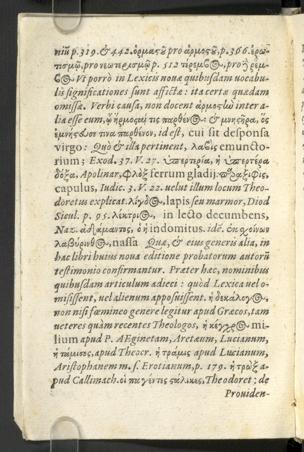 niũ p.319. & 442. ὁρμασῶ pro ἁρμοσῶ, p.366.
τισμῷ, pro νωτισμῷ p. 512
Vt porrò in Lexicis nouæ quibusdam vocabu-
lis significationes sunt affictæ: ita certæ quædam
omissæ. Verbi causa, non docent inter a-
lia esse eum, ᾧ ἥρμοσαί τις παρθένος: & μνηστῆρα, ὃς
ἐμνήστευσέ τινα παρθένον, id est, cui sit desponsa
virgo: Quò & illa pertinent, λαβὶς emuncto-
rium: Exod. 37. V. 21. ὑπερτερία, ἡ ὑπερτέρα
δόξα, Apolinar, φλὸξ ferrum gladij:
capulus, Iudic. 3. V. 22. velut illum locum Theo-
doretus explicat. λίγδος, lapis seu marmor, Diod
Sicul. p. 95. in lecto decumbens,
Naz. ἀδάμαντος, ὁ ἡ indomitus. idẽ.
λαβύρινθος, nassa Quæ, & eius generis alia, in
hac libri huius noua editione probatorum autorũ
testimonio confirmantur. Præter hæc, nominibus
quibusdam articulum adieci: quòd Lexica vel o-
misissent, vel alienum apposuissent. ἡ δεκάλογος,
non nisi fœmineo genere legitur apud Græcos, tam
veteres quàm recentes Theologos, ἡ κέγχρος mi-
lium apud P. AEginetam, Aretæum, Lucianum,
ἡ τάμισος, apud Theocr. ἡ τράμις apud Lucianum,
Aristophanem m. s. Erotianum, p. 179. ἡ τρὼξ a-
pud Callimach. οἱ παγέντες σκόλοπες, Theodoret: de
Prouiden-